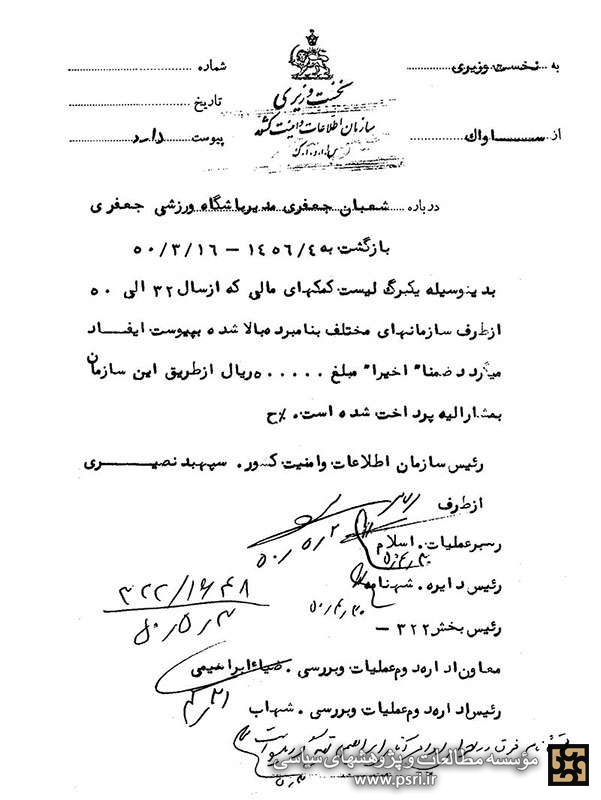 به نخست وزیری
شماره
نخست وزیری
تاریخ
سازمان اطلاعات و امنیت کشور
از ســاواك
پیوست دارد
درباره شعبان جعفری مدیر باشگاه ورزشی جعفری
بازگشت به ۱۴۵۶/۴ – ۵۰/۳/۱۶
بدینوسیله یکبرگ لیست کمکهای مالی که از سال ۳۲ الی ۵۰
از طرف سازمانهای مختلف بنامبرده بالا شده بپیوست ایفاد
میگردد ضمنا" اخیرا" مبلغ ۵۰۰۰۰۰ ریال از طریق این سازمان
بمشارالیه پرداخت شده است. ح
رئیس سازمان اطلاعات و امنیت کشور. سپهبد نصیـری
از طرف
۵۰/۵/۲
رهبر عملیات. اسلام
رئیس دایره. شهنامه
۳۲۲/۱۶۴۸
۵۰/۵/۳
۵۰/۴/۳۰
رئیس بخش ۳۲۲ –
معاون اداره دوم عملیات و بررسی. ضیاء ابراهیمی
رئیس اداره دوم عملیات و بررسی. شهاب
مؤسسه مطالعات و پژوهشهای سیاسی
www.psri.ir